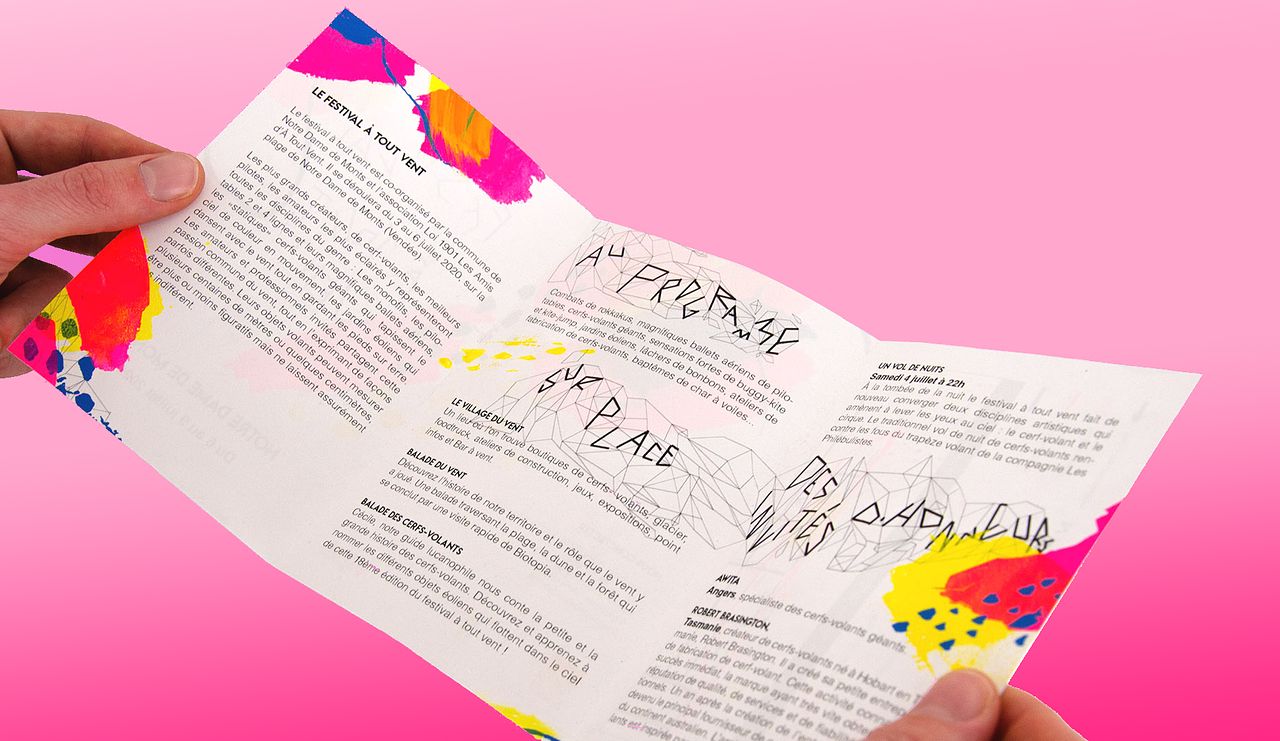 LE FESTIVAL À TOUT VENT
Le festival à tout vent est co-organisé par la commune de
Notre Dame de Monts et l'association Loi 1901 Les Amis
d'À Tout Vent. Il se déroulera du 3 au 6 juillet 2020, sur la
plage de Notre Dame de Monts (Vendée).
Les plus grands créateurs, de cerf-volants, les meilleurs
pilotes, les amateurs les plus éclairés y représenteront
toutes les disciplines du genre : Les monofils, les pilo-
tables 2 et 4 lignes et leurs magnifiques ballets aériens,
les «statiques» cerfs-volants géants qui tapissent le
ciel de couleur en mouvement, les jardins éoliens qui
dansent avec le vent tout en gardant les pieds sur terre.
Les amateurs et professionnels invités, partagent cette
passion commune du vent, tout en l'exprimant de façons
parfois différentes. Leurs objets volants peuvent mesurer
plusieurs centaines de mètres ou quelques centimètres,
être plus ou moins figuratifs mais ne laissent assurément
indifférent.
AU PROGRAMME
Combats de rokkakus, magnifiques ballets aériens de pilo-
tables, cerfs-volants géants, sensations fortes de buggy-kite
et kite-jump, jardins éoliens, lâchers de bonbons, ateliers de
fabrication de cerfs-volants, baptêmes de char à voiles...
SUR PLACE
LE VILLAGE DU VENT
Un lieu où l'on trouve boutiques de cerfs-volants, glacier,
foodtruck, ateliers de construction, jeux, expositions, point
infos et Bar à vent.
BALADE DU VENT
Découvrez l'histoire de notre territoire et le rôle que le vent y
a joué. Une balade traversant la plage, la dune et la forêt qui
se conclut par une visite rapide de Biotopia.
BALADE DES CERFS-VOLANTS
Cécile, notre guide lucanophile nous conte la petite et la
grande histoire des cerfs-volants. Découvrez et apprenez à
nommer les différents objets éoliens qui flottent dans le ciel
de cette 18ème édition du festival à tout vent !
UN VOL DE NUITS
Samedi 4 juillet à 22h
À la tombée de la nuit le festival à tout vent fait de
nouveau converger deux disciplines artistiques qui
amènent à lever les yeux au ciel : le cerf-volant et le
cirque. Le traditionnel vol de nuit de cerfs-volants ren-
contre les fous du trapèze volant de la compagnie Les
Philébulistes.
DES INVITÉS D'HONNEURS
AWITA
Angers, spécialiste des cerfs-volants géants.
ROBERT BRASINGTON,
Tasmanie, créateur de cerfs-volants né à Hobart en
manie, Robert Brasington. Il a créé sa petite
de fabrication de cerf-volant. Cette activité
succès immédiat, la marque ayant très vite
réputation de qualité, de services et de
tionnels. Un an après la création de
devenu le principal fournisseur de
du continent australien.
lants est inspirée